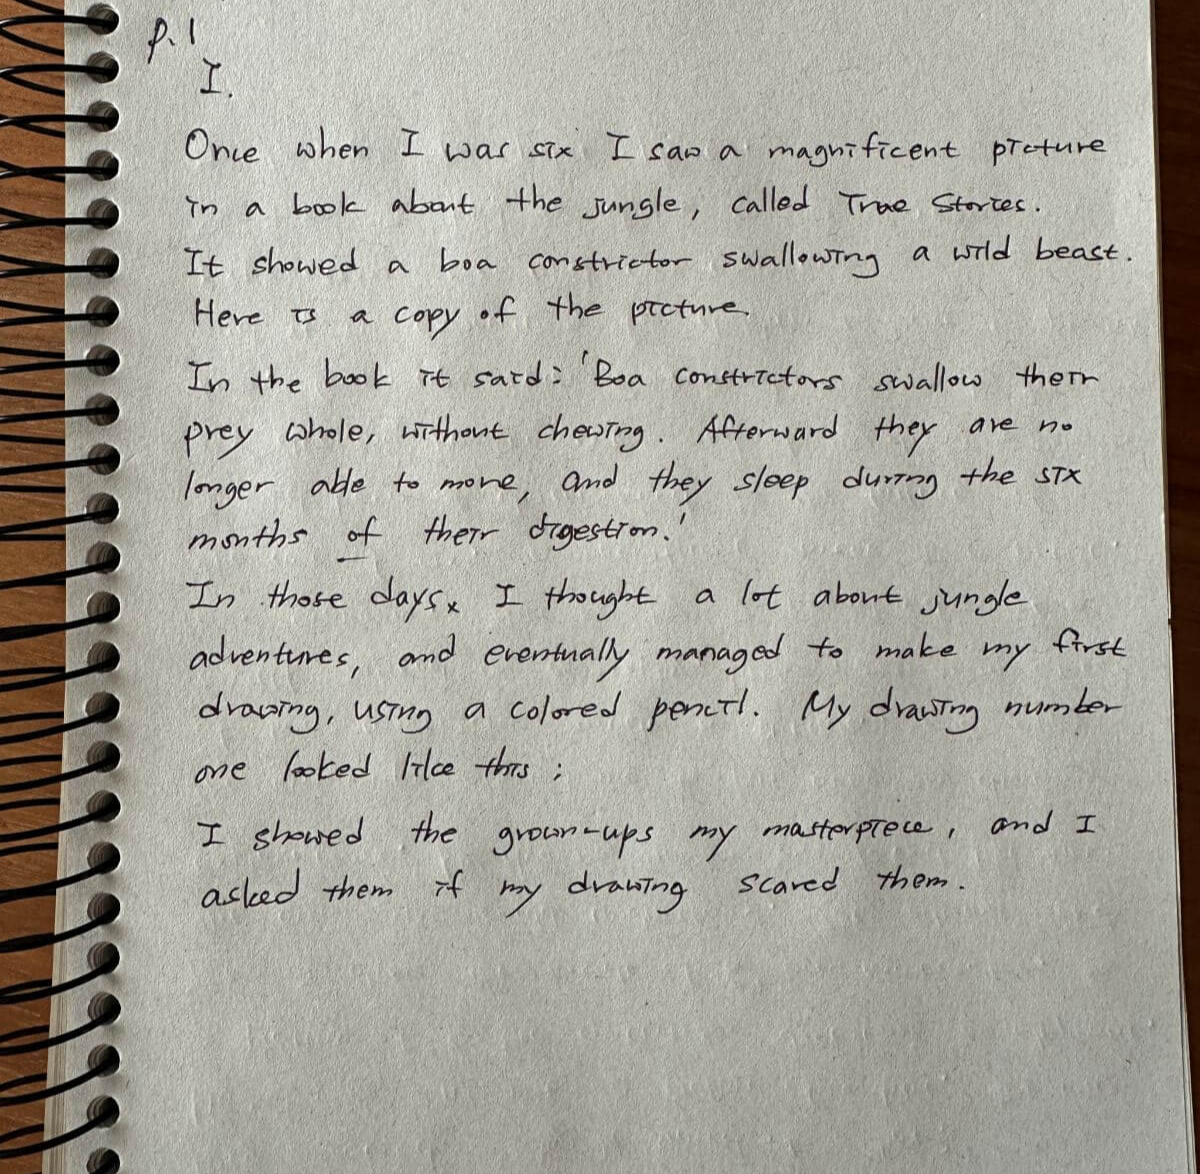 p.1
I.
Once when I was six I saw a magnificent picture
in a book about the jungle, called True Stories.
It showed a boa constrictor swallowing a wild beast.
Here is a copy of the picture.
In the book it said: 'Boa constrictors swallow their
prey whole, without chewing. Afterward they are no
longer able to move, and they sleep during the six
months of their digestion.'
In those days x I thought a lot about jungle
adventures, and eventually managed to make my first
drawing, using a colored pencil. My drawing number
one looked like this;
I showed the grown-ups my masterpiece, and I
asked them if my drawing scared them.